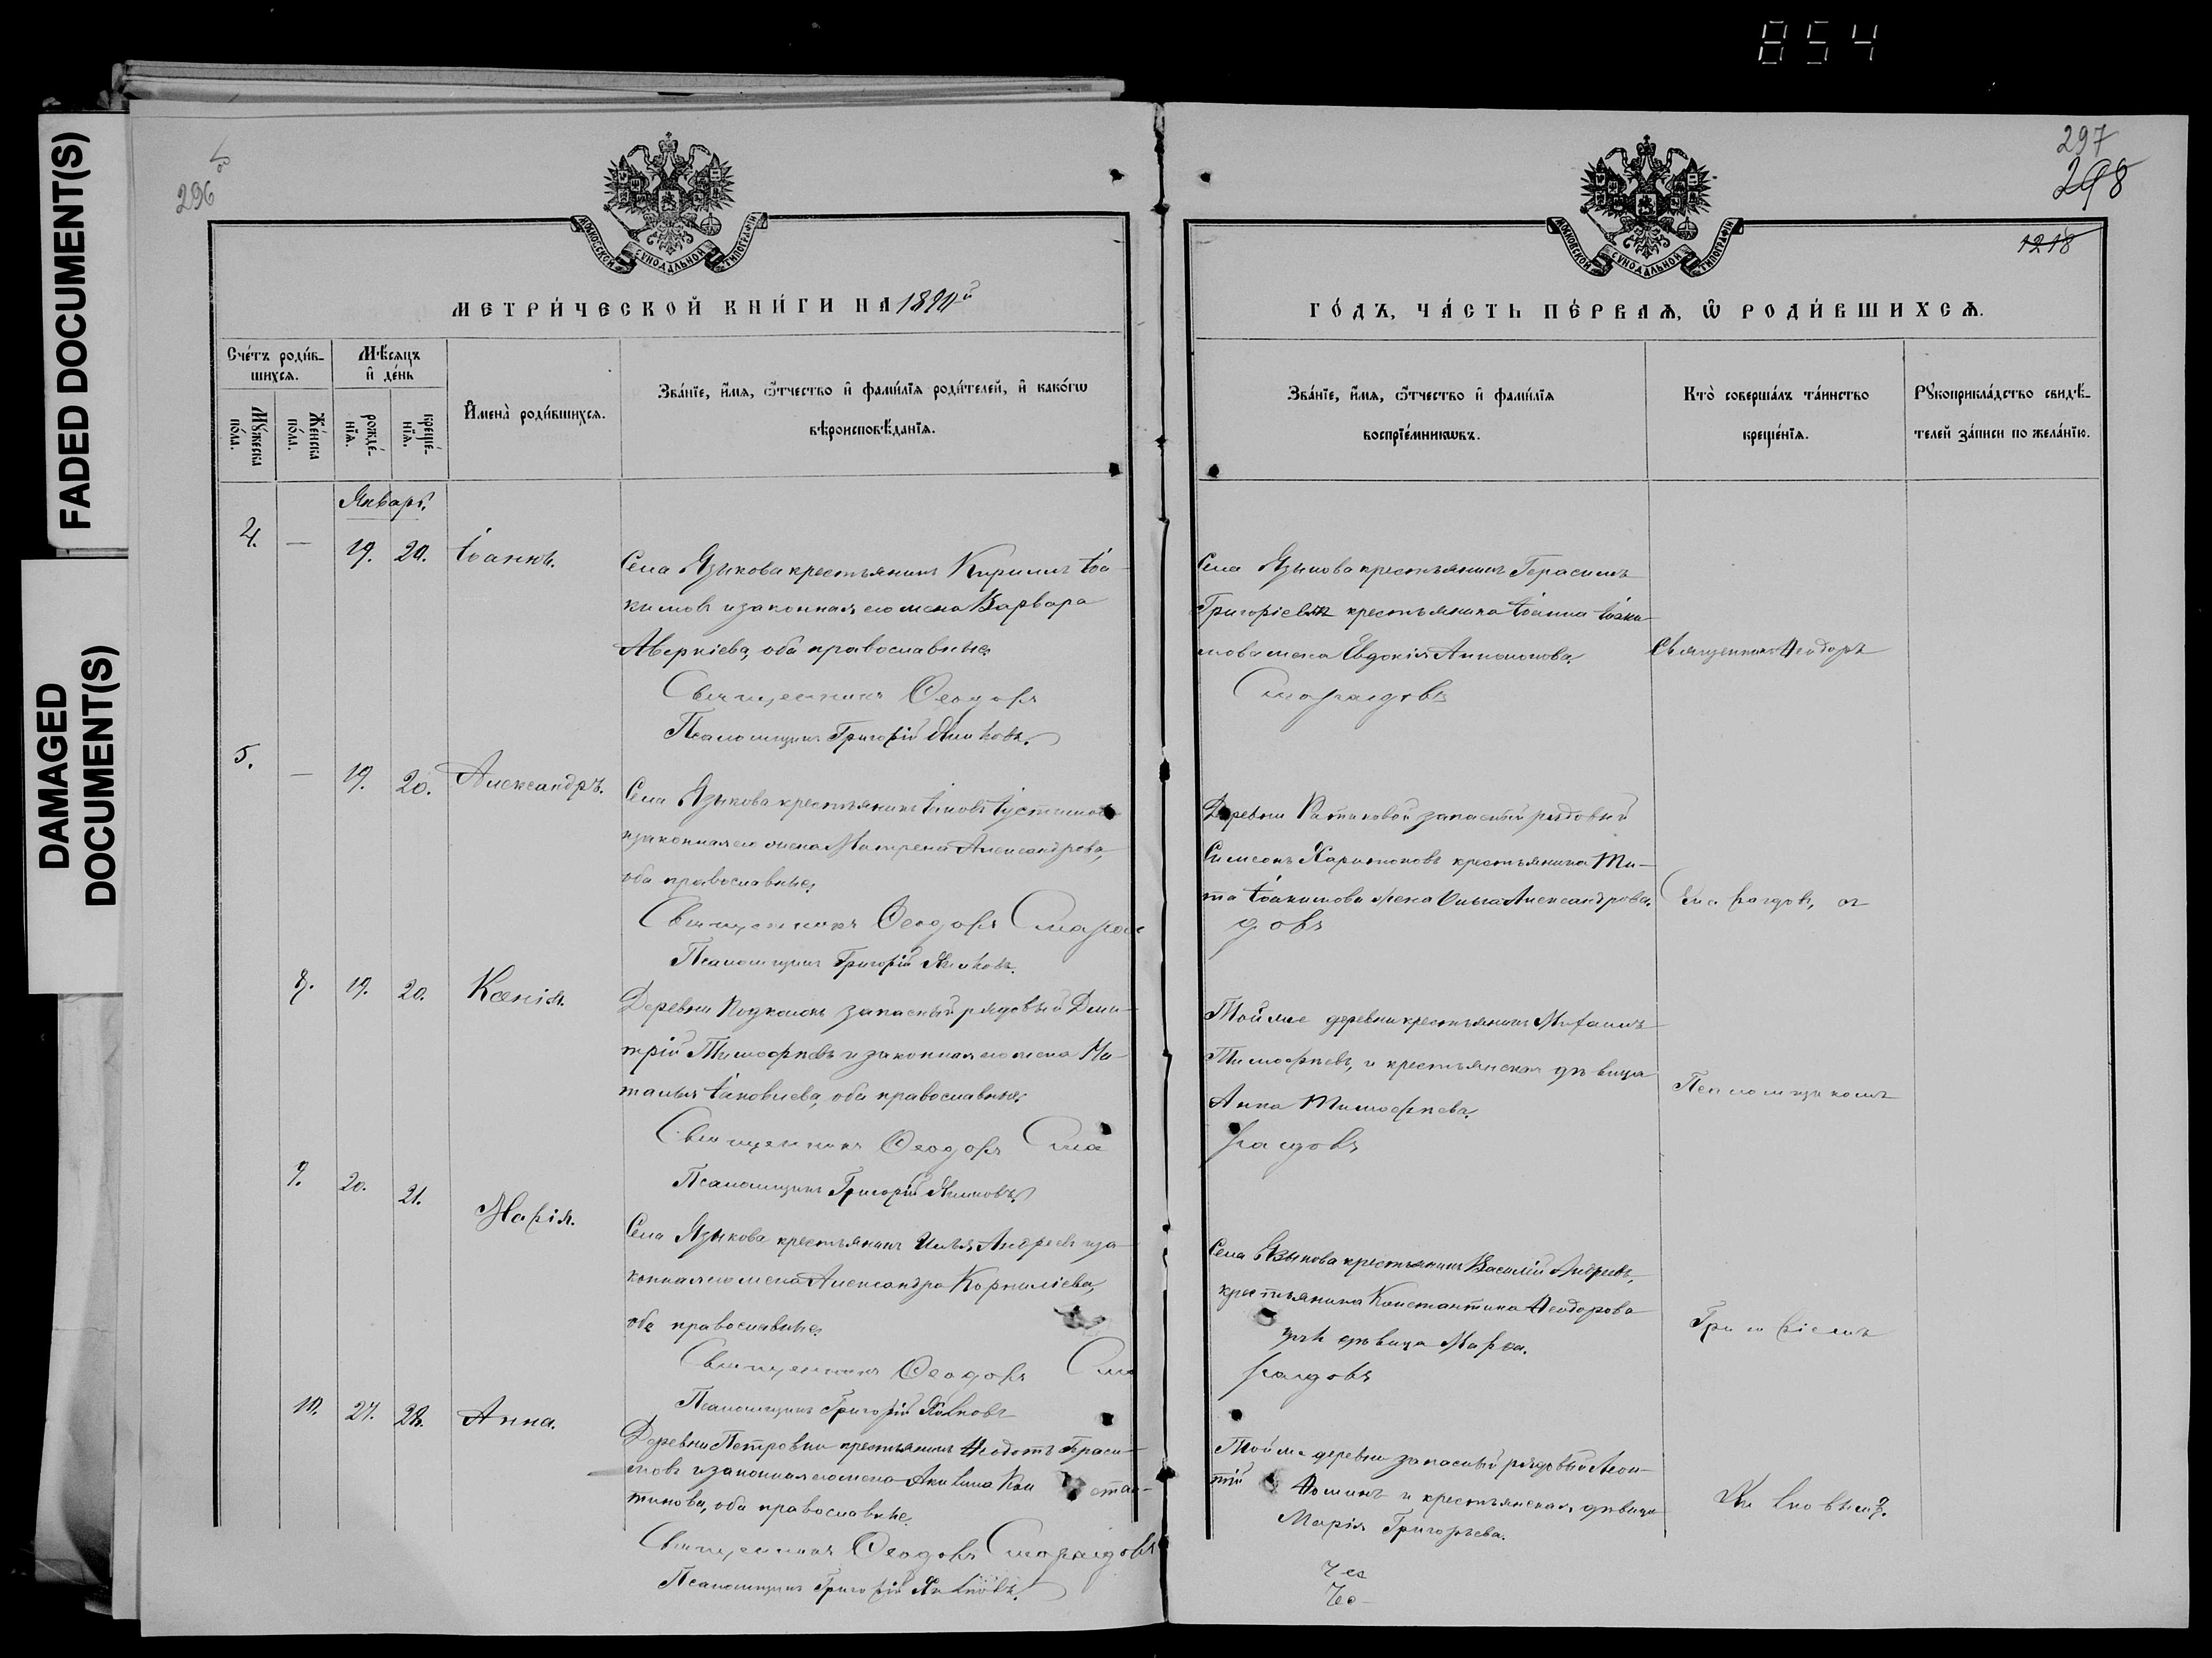 854
FADED DOCUMENT(S)
DAMAGED
DOCUMENT(S)
296 об
297
298
1218
МОСКОВСКОЙ СѴНОДАЛЬНОЙ ТИПОГРАФІИ
МОСКОВСКОЙ СѴНОДАЛЬНОЙ ТИПОГРАФІИ
МЕТРИ́ЧЕСКОЙ КНИ́ГИ НА
ГО́ДЪ, ЧА́СТЬ ПЕ́РВАѦ, Ѿ РОДИ́ВШИХСѦ.
Сче́тъ роди́в-
шихсѧ.
Мѣ́сѧцъ
и де́нь
Мꙋ́жеска
по́ла.
Же́нска
по́ла.
рожде́-
нїѧ.
креще́-
нїѧ.
И҆мена̀ роди́вшихсѧ.
Зва́нїе, и҆́мѧ, ѻ҆́тчество и҆ фами́лїѧ роди́телей, и҆ како́гѡ
вѣроисповѣ́данїѧ.
Зва́нїе, и҆́мѧ, ѻ҆́тчество и҆ фами́лїѧ
воспрїе́мникѡвъ.
Кто̀ соверша́лъ та́инство
креще́нїѧ.
Рꙋкоприкла́дство свидѣ́-
телей за́писи по жела́нїю.
Январь
4. — 19. 20. Іоаннъ.
Села Языкова крестьянинъ Кирилъ Іоа-
кимовъ и законная его жена Варвара
Аверкіева, оба православные
Священникъ Ѳеодоръ
Псаломщикъ Григорій
Села Языкова крестьянинъ Герасимъ
Григорьевъ крестьянина Іоанна Іоаки-
мова жена Евдокія
Смарагдовъ
Священникъ Ѳеодоръ
5. — 19. 20. Александръ.
Села Языкова крестьянинъ Іаковъ Іустиновъ
и законная его жена Матрена Александрова,
оба православные,
Священникъ Ѳеодоръ Смараг
Псаломщикъ Григорій
Деревни запасный рядовый
Симеонъ Харитоновъ крестьянина Ти-
та Іоакимова жена Ольга Александрова.
довъ
Смарагдовъ, съ
8. 19. 20. Ксенія.
Деревни запасный рядовый Дми-
трій Тимофеевъ и законная его жена На-
талья Іаковлева, оба православные.
Священникъ Ѳеодоръ Сма
Псаломщикъ Григорій
Той же деревни крестьянинъ Михаилъ
Тимофеевъ, и крестьянская дѣвица
Анна Тимофеева.
рагдовъ
Псаломщикомъ
9. 20. 21. Марія.
Села Языкова крестьянинъ Илья Андреевъ и за-
конная его жена Александра Корниліева,
оба православные
Священникъ Ѳеодоръ Сма
Псаломщикъ Григорій
Села Языкова крестьянинъ Василій Андреевъ,
крестьянина Константина Ѳеодорова
дочь дѣвица Марѳа.
рагдовъ
Григоріемъ
10. 27. 28. Анна.
Деревни Петровки крестьянинъ Ѳеодотъ Гераси-
мовъ и законная его жена Акилина Констан-
тинова, оба православные.
Священникъ Ѳеодоръ Смарагдовъ
Псаломщикъ Григорій
Той же деревни запасный рядовый Леон-
тій Ѳоминъ и крестьянская дѣвица
Марія Григорьева.